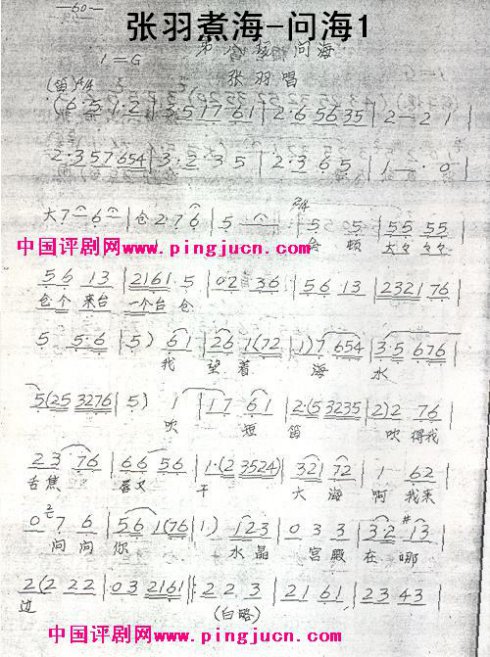 张羽煮海-问海1
—60—
1=G
问海
张羽唱
(笛)4/4
(6·5 1·2 | 3·5 17 61 | 2·6 56 35 | 2—21 |
2·3 57 654 | 3·2 35 | 2·3 65 | 1—·0 |
大7—6— | 仓 2 7 6 | 5—— | 2/4 5 5 | 55 55 |
仓 顿 大々 々々
中国评剧网www.pingjucn.com
56 13 | 2161 5 | 02 36 | 56 13 | 2321 76 |
仓个 来台 一个台 仓
5 5·6 | 5) 61 | 26 1(72 | 1)7 654 | 35 676 |
我 望着 海 水
5(25 3276 | 5) 1 | 17 61 | 2·(5 3235 | 2)2 76 |
吹 短 笛 吹得我
23 76 | 66 56 | 1·(2 3524) | 321 72 | 1 62 |
舌焦 唇又 干 大海 啊 我来
0 7 6 | 56 1(76 | 1) 123 | 0 3 3 | 3·2 #13 |
问问 你 水晶 宫殿 在哪
2(2 22 | 03 2161 ‖: 2 2 3 | 21 61 | 23 43 |
边 (白略)
中国评剧网www.pingjucn.com